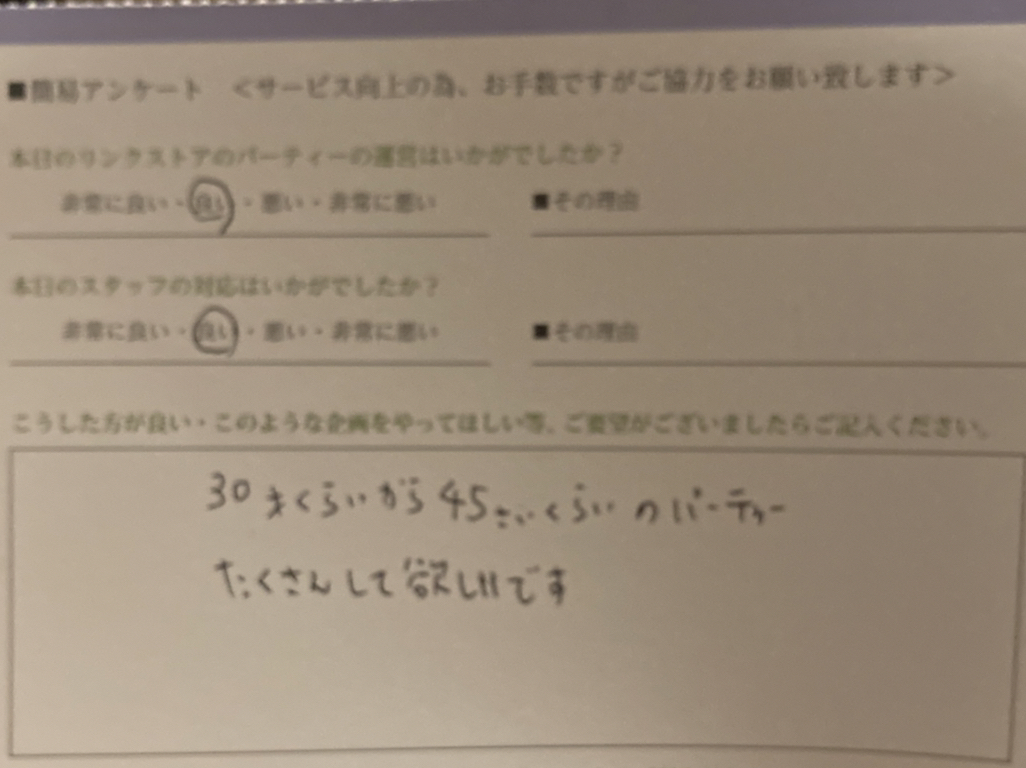 ■簡易アンケート <サービス向上の為、お手数ですがご協力をお願い致します>
本日のリンクストアのパーティーの運営はいかがでしたか?
非常に良い・良い・悪い・非常に悪い ■その理由
本日のスタッフの対応はいかがでしたか?
非常に良い・良い・悪い・非常に悪い ■その理由
こうした方が良い・このような企画をやってほしい等、ご要望がございましたらご記入ください。
30才くらいがら45さいくらいのパーティー
たくさんして欲しいです